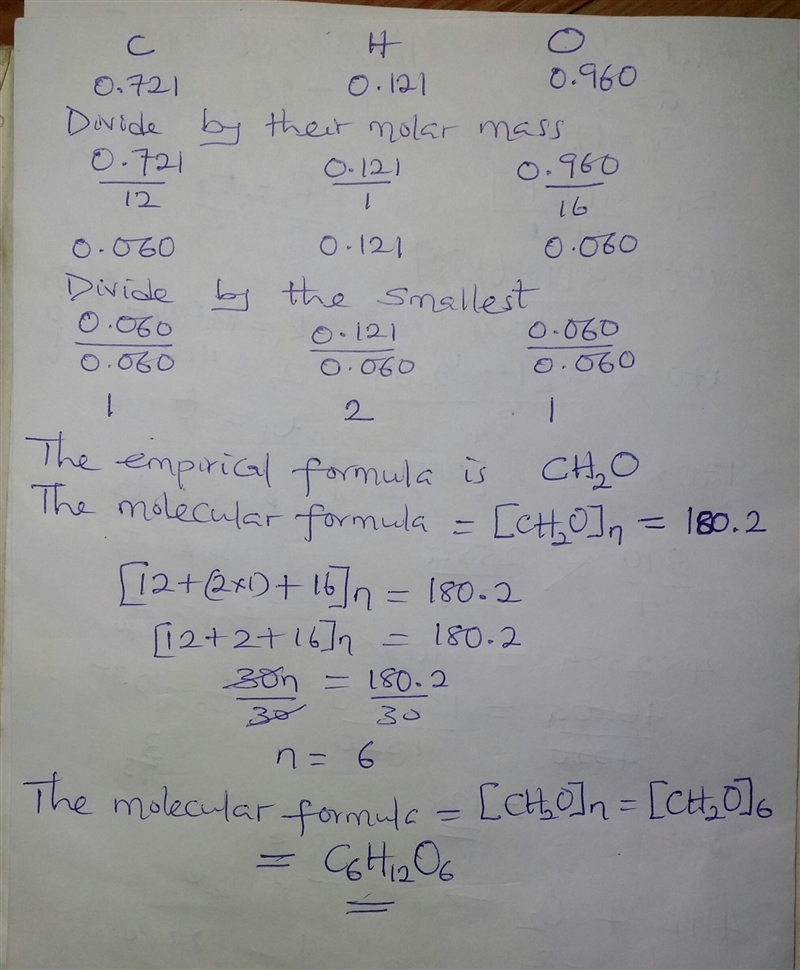 C H O
0.721 0.121 0.960
Divide by their molar mass
0.721/12 0.121/1 0.960/16
0.060 0.121 0.060
Divide by the smallest
0.060/0.060 0.121/0.060 0.060/0.060
1 2 1
The empirical formula is CH₂O
The molecular formula = [CH₂O]n = 180.2
[12+(2×1)+16]n = 180.2
[12+2+16]n = 180.2
30n/30 = 180.2/30
n = 6
The molecular formula = [CH₂O]n = [CH₂O]6
= C₆H₁₂O₆